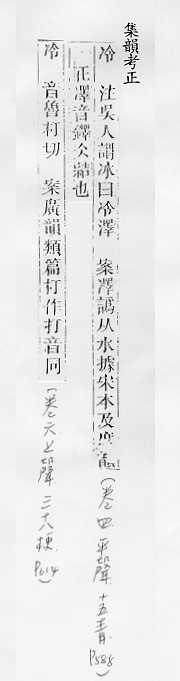 集韻考正
冷 注吳人謂冰曰冷澤 案澤譌从水據宋本及廣韻
正凙音鐸仌結也
冷 音魯打切 案廣韻類篇打作打音同
(卷四 平聲 十五青 P588)
(卷六上聲 三十八梗 P614)